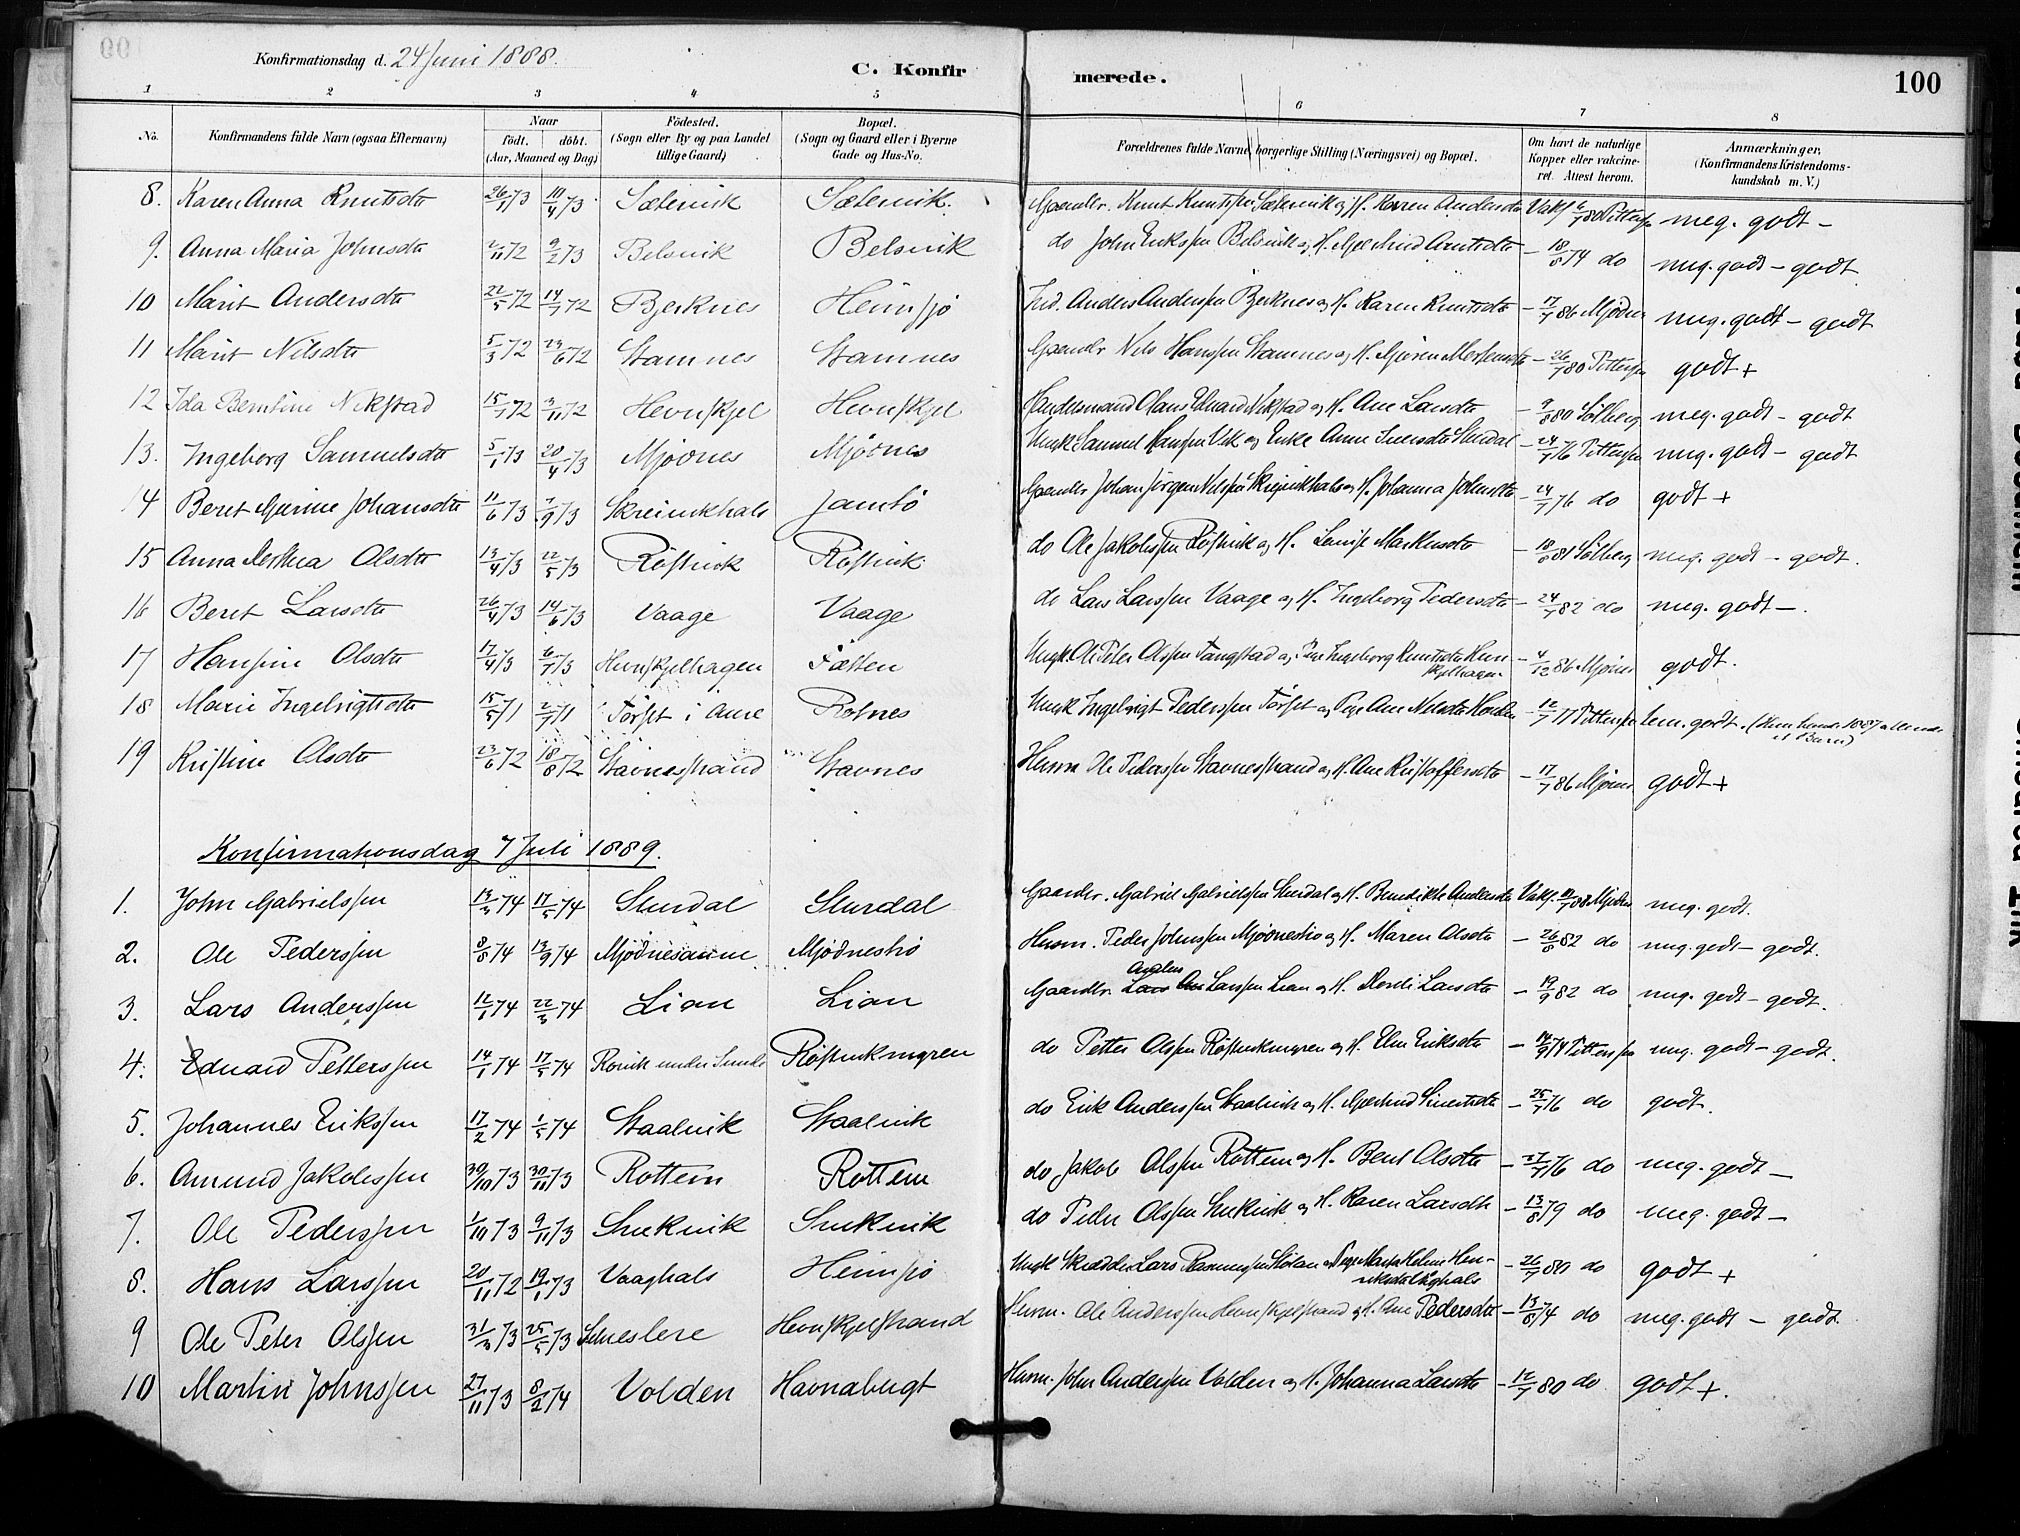 Konfirmationsdag d. 24 Juni 1888. C. Konfirmerede. 100
1 2 3 4 5 6 7 8
No. Konfirmandens fulde Navn (ogsaa Efternavn) Naar født. døbt. (Aar, Maaned og Dag) Fødested. (Sogn eller By og paa Landet tillige Gaard) Bopæl. (Sogn og Gaard eller i Byerne Gade og Hus-No. Forældrenes fulde Navne, borgerlige Stilling (Næringsvei) og Bopæl. Om havt de naturlige Kopper eller vakcineret. Attest herom. Anmærkninger. (Konfirmandens Kristendomskundskab m. V.)
8. Karen Anna Knutsdtr 26/1 73 10/4 73 Sætervik Sætervik. Gaardbr. Knut Knutssen Sætervik og H. Karen Andersdtr meg. godt -
9. Anna Maria Johnsdtr 2/11 72 9/2 73 Belsvik Belsvik do John Erikssen Belsvik og H. Gjertrud Arntsdtr - 18/8 74 do meg. godt - godt
10 Marit Andersdtr 22/5 72 14/7 72 Bjerknes Heimsjø Ind. Anders Anderssen Bjerknes og H. Karen Knutsdtr - 17/7 86 Mjøvnes meg. godt - godt
11 Marit Nilsdtr 5/3 72 23/6 72 Stamnes Stamnes Gaardbr Nils Hanssen Stamnes og H. - 26/7 80 Petterssen godt +
12 Ida Berntine Nekstad 15/7 72 3/11 72 Hevnskjel Hevnskjel Handelsmand Olaus Eduard Nekstad og H. Ane Larsdtr - 9/8 80 Solberg meg. godt - godt
13. Ingeborg Samuelsdtr 5/1 73 20/4 73 Mjøvnes Mjøvnes Ungk. Samuel Hanssen Vik og Enke Anne Iversdtr Slurdal - 24/7 76 Petterssen meg. godt - godt
14 Beret Gjurine Johansdtr 11/6 73 7/9 73 Jamtø Gaardbr Johan Jørgen Nilssen og H. Johanna Johnsdtr - 24/7 76 do godt +
15 Anna Olsdtr 13/4 73 22/5 73 Røstvik Røstvik do Ole Jakobssen Røstvik og H. Lovise Markusdtr - 81 Solberg meg. godt - godt.
16 Beret Larsdtr 26/4 73 14/6 73 Vaage Vaage do Lars Larssen Vaage og H. Ingeborg Pedersdtr - 24/7 82 do meg. godt -.
17 Hansine Olsdtr 17/4 73 6/7 73 Hevnskjelhagen Fætten Ungk. Ole Peter Olssen Tangstad og Pige Ingeborg Knutsdtr Hevnskjelhagen - 4/12 86 Mjøvnes godt.
18 Marie Ingebrigtsdtr 15/5 71 2/7 71 Torset i Aure Rotnes Ungk Ingebrigt Pederssen Torset og Pige Ane Nilsdtr - 12/7 77 Petterssen tem. godt.
19 Kristine Olsdtr 23/6 72 18/8 72 Stavnesstrand Stavnes Husm Ole Pederssen Stavnesstrand og H. Ane Kristoffersdtr - 17/7 86 Mjøvnes godt +
Konfirmationsdag 7 Juli 1889.
1. John Gabrielssen 13/3 74 17/5 74 Slurdal Slurdal Gaardbr. Gabriel Gabrielssen Slurdal og H. Benedikte Andersdtr Vakc. 88 Mjøvnes meg. godt.
2. Ole Pederssen 8/8 74 13/9 74 Mjøvnesaune Mjøvneshø Husm. Peder Johnssen Mjøvneshø og H. Maren Olsdtr - 26/8 82 do meg. godt - godt.
3. Lars Anderssen 12/1 74 22/3 74 Lian Lian Gaardbr. Anders Larssen Lian og H. Larsdtr - 19/9 82 do meg. godt - godt.
4. Eduard Petterssen 14/1 74 17/5 74 Røstvikmyren do Petter Olssen Røstvikmyren og H. Elen Eriksdtr - 74 Petterssen meg. godt - godt.
5. Johannes Erikssen 17/2 74 1/5 74 Staalvik Staalvik do Erik Anderssen Staalvik og H. Gjertrud Sivertsdtr - 25/7 76 do godt.
6. Amund Jakobssen 30/10 73 30/11 73 Rottem Rottem do Jakob Olssen Rottem og H. Beret Olsdtr - 27/7 76 do meg. godt -
7. Ole Pederssen 1/10 73 9/11 73 Snekvik Snekvik do Peder Olssen Snekvik og H. Karen Larsdtr - 13/8 79 do meg. godt -
8. Hans Larssen 20/11 72 19/1 73 Vaaghals Heimsjø Ungk Skrædder Lars Rasmussen Stølan og Pige Marta Helene Henriksdtr Vaghals - 26/7 80 do godt +
9 Ole Peter Olssen 31/3 73 25/5 73 Hevnskjelstrand Husm. Ole Anderssen Hevnskjelstrand og H. Ane Pedersdtr - 13/8 74 do meg. godt - godt.
10 Martin Johnssen 27/11 73 8/2 74 Volden Havnabugt Husm. John Anderssen Volden og H. Johanna Larsdtr - 12/7 80 do godt +.